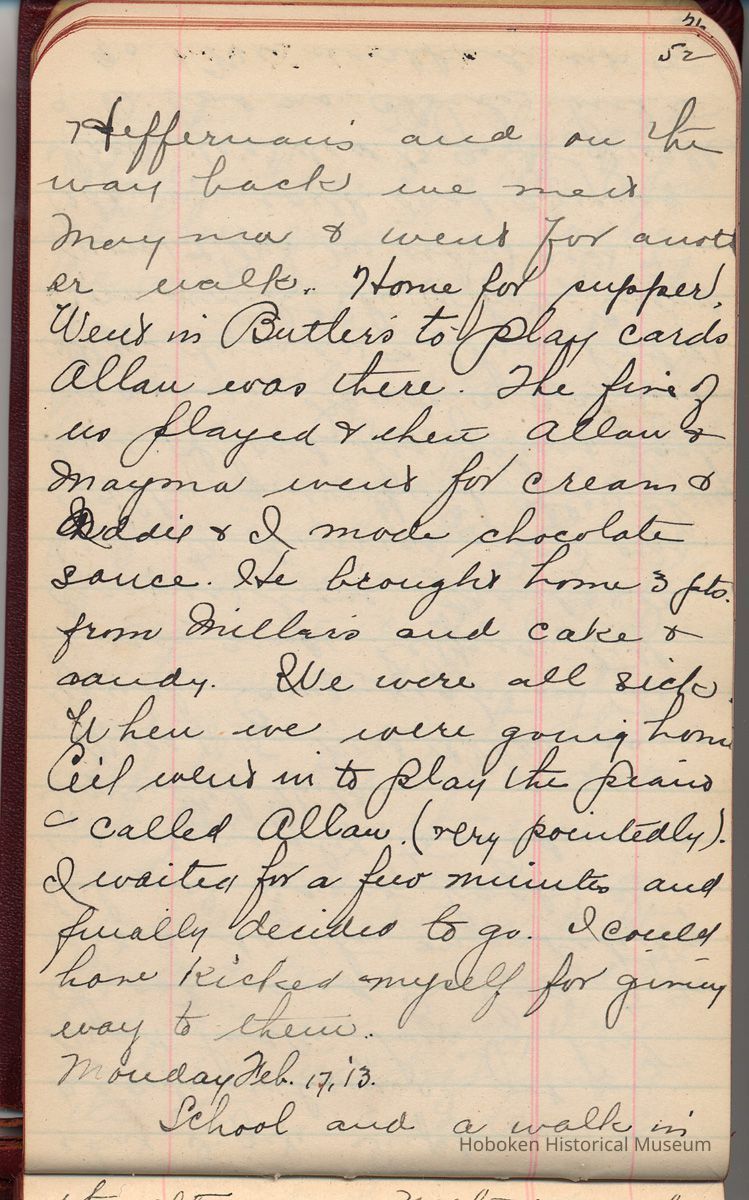 52
Heffernan's and on the
way back we met
Mayma & went for anoth
er walk. Home for supper.
Went in Butler's to play cards
Allan was there. The five of
us played & then Allan &
Mayma went for cream &
Addie & I made chocolate
sauce. He brought home 3 pts.
from Millar's and cake &
candy. We were all sick.
When we were going home
Ceil went in to play the piano
& called Allan. (very pointedly).
I waited for a few minutes and
finally decided to go. I could
have kicked myself for giving
way to them.
Monday Feb. 17, '13.
School and a walk in
Hoboken Historical Museum